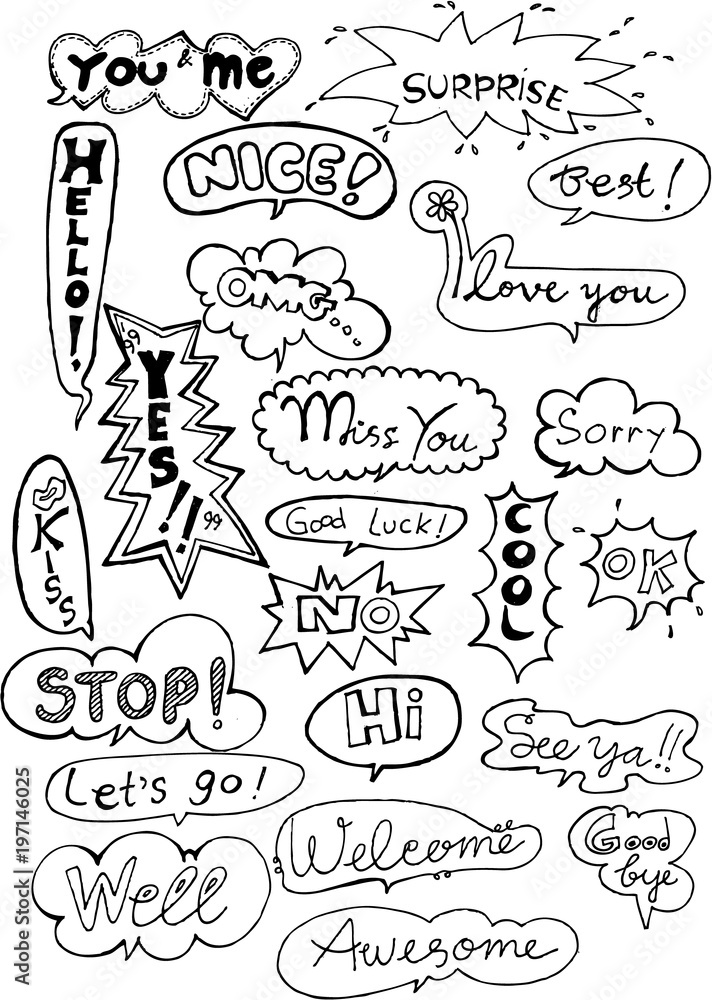 You & me
SURPRISE
HELLO!,
NICE!
Best!
I love you
OMG...
YES!!
Miss You
Sorry
KISS
Good Luck!
COOL
OK
NO
STOP!
Hi
See ya!!
Let's go!
Welcome
Good
bye
Well
Awesome
Adobe Stock | #197146025